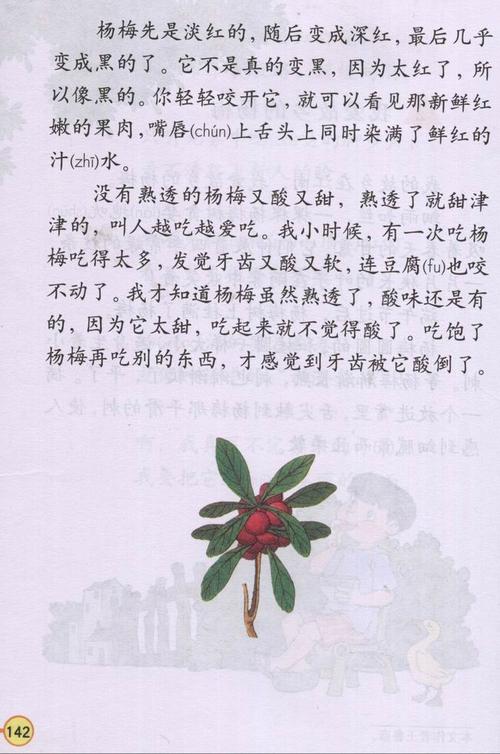 杨梅先是淡红的，随后变成深红，最后几乎
变成黑的了。它不是真的变黑，因为太红了，所
以像黑的。你轻轻咬开它，就可以看见那新鲜红
嫩的果肉，嘴唇(chún)上舌头上同时染满了鲜红的
汁(zhī)水。
没有熟透的杨梅又酸又甜，熟透了就甜津
津的，叫人越吃越爱吃。我小时候，有一次吃杨
梅吃得太多，发觉牙齿又酸又软，连豆腐(fu)也咬
不动了。我才知道杨梅虽然熟透了，酸味还是有
的，因为它太甜，吃起来就不觉得酸了。吃饱了
杨梅再吃别的东西，才感觉到牙齿被它酸倒了。
142